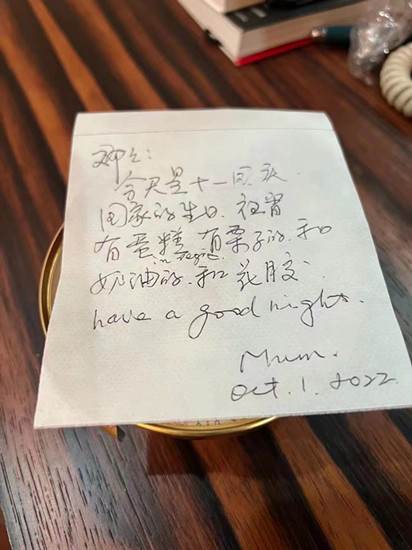 今天是十一国庆.
国家的生日. 夜宵
有蛋糕 有栗子的.和
in fridge
奶油的.和花胶.
have a good night.
Mum.
Oct. 1. 2022